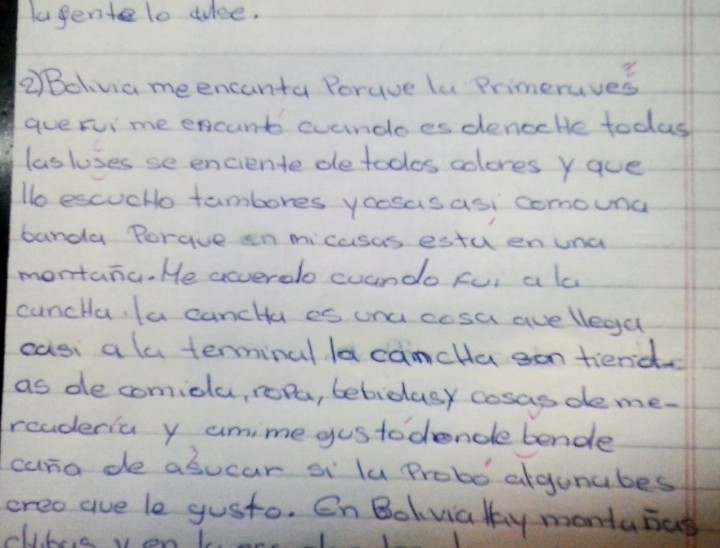 la gente lo dulce.
2) Bolivia me encanta Porque la Primera ves
que Fui me encantó cuando es de nocHe todas
las luses se enciente de todos colores y que
llo escucHo tambores y cosas así como una
banda Porque en mi casas esta en una
montaña. Me acuerdo cuando Fui a la
cancHa. la cancHa es una cosa que llega
casi a la terminal la cancHa son tiend-
as de comida, ropa, bebidas y cosas de me-
rcadería y a mi me gusto donde bende
caña de asucar si la Probó algunabes
creo que le gusto. En Bolivia Hay montañas